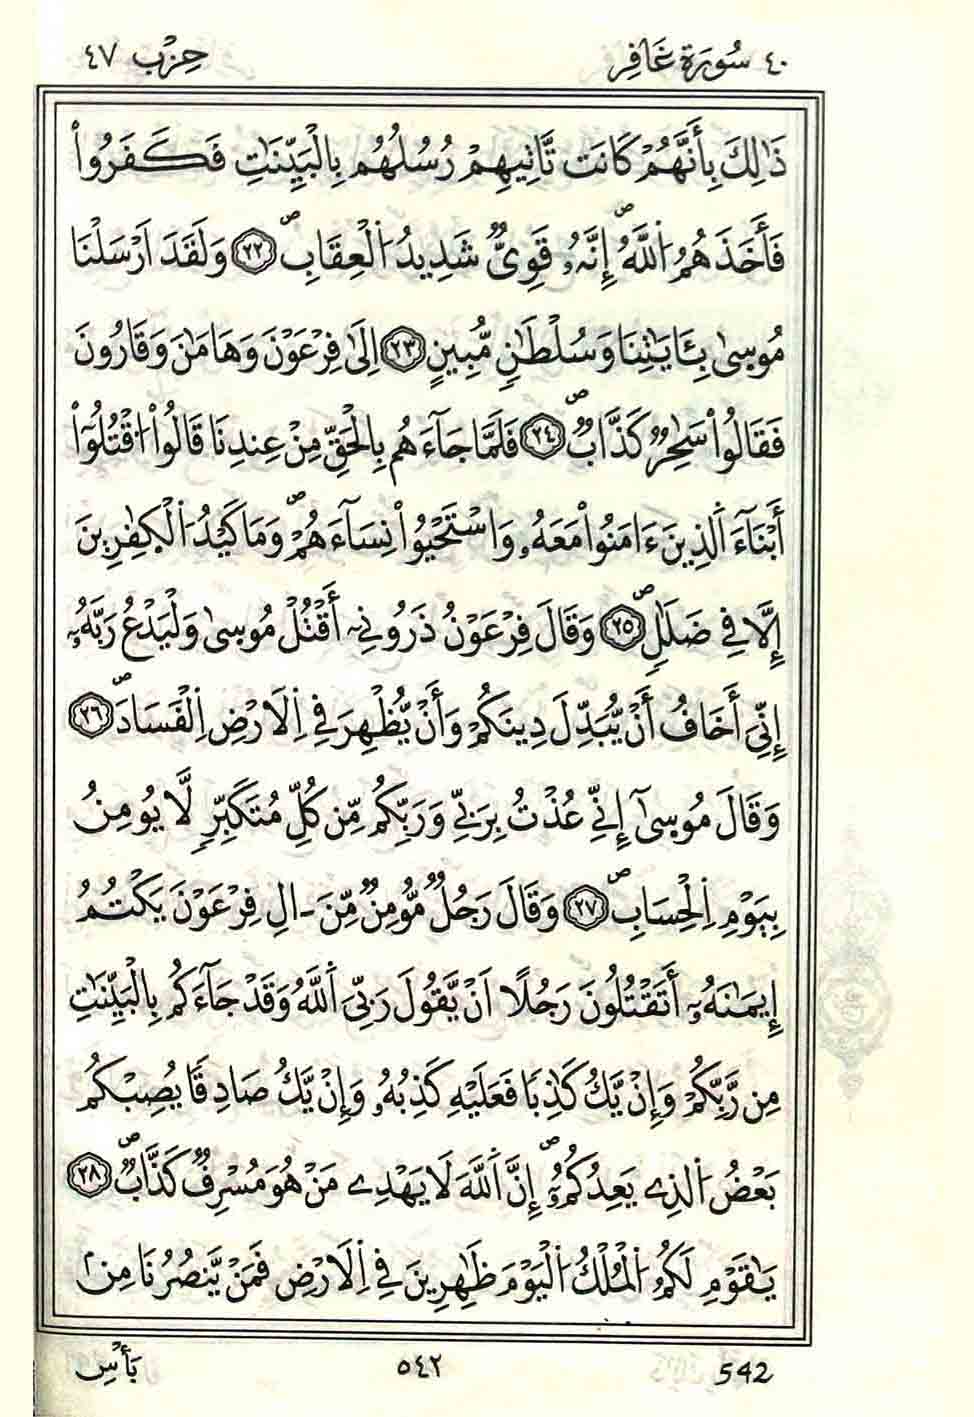 ٤٠ سُورَةُ غَافِرٍ حِزْب ٤٧
ذَٰلِكَ بِأَنَّهُمْ كَانَت تَّاتِيهِمْ رُسُلُهُم بِالْبَيِّنَٰتِ فَكَفَرُواْ
فَأَخَذَهُمُ اُللَّهُۖ إِنَّهُۥ قَوِيّٞ شَدِيدُ اُلْعِقَابِۖ ٢٢ وَلَقَدَ اَرْسَلْنَا
مُوسىٰ بِـَٔايَٰتِنَا وَسُلْطَٰنٖ مُّبِينٍ ٢٣ اِلَىٰ فِرْعَوْنَ وَهَامَٰنَ وَقَارُونَ
فَقَالُواْ سَٰحِرٞ كَذَّابٞۖ ٢٤ فَلَمَّا جَآءَهُم بِالْحَقِّ مِنْ عِندِنَا قَالُواْ اُ۟قْتُلُوٓاْ
أَبْنَآءَ اَلذِينَ ءَامَنُواْ مَعَهُۥ وَاسْتَحْيُواْ نِسَآءَهُمْۖ وَمَا كَيْدُ اُلْكٰفِرِينَ
إِلَّا فِے ضَلَٰلٖۖ ٢٥ وَقَالَ فِرْعَوْنُ ذَرُونِےٓ أَقْتُلْ مُوسىٰ وَلْيَدْعُ رَبَّهُۥٓ
إِنِّيَ أَخَافُ أَنْ يُّبَدِّلَ دِينَكُمْ وَأَنْ يُّظْهِرَ فِے اِلَارْضِ اِلْفَسَادَۖ ٢٦
وَقَالَ مُوسىٰٓ إِنِّے عُذْتُ بِرَبِّے وَرَبِّكُم مِّن كُلِّ مُتَكَبِّرٖ لَّا يُومِنُ
بِيَوْمِ اِلْحِسَابِۖ ٢٧ وَقَالَ رَجُلٞ مُّومِنٞ مِّنَ ـ اٰلِ فِرْعَوْنَ يَكْتُمُ
إِيمَٰنَهُۥٓ أَتَقْتُلُونَ رَجُلًا اَنْ يَّقُولَ رَبِّيَ اَللَّهُ وَقَدْ جَآءَكُم بِالْبَيِّنَٰتِ
مِن رَّبِّكُمْ وَإِنْ يَّكُ كَٰذِبٗا فَعَلَيْهِ كَذِبُهُۥ وَإِنْ يَّكُ صَادِقٗا يُصِبْكُم
بَعْضُ اُلذِے يَعِدُكُمُۥٓۖ إِنَّ اَللَّهَ لَا يَهْدِے مَنْ هُوَ مُسْرِفٞ كَذَّابٞۖ ٢٨
يَٰقَوْمِ لَكُمُ اُلْمُلْكُ اُلْيَوْمَ ظَٰهِرِينَ فِے اِلَارْضِ فَمَنْ يَّنصُرُنَا مِنۢ
بَأْسِ ٥٤٢ 542